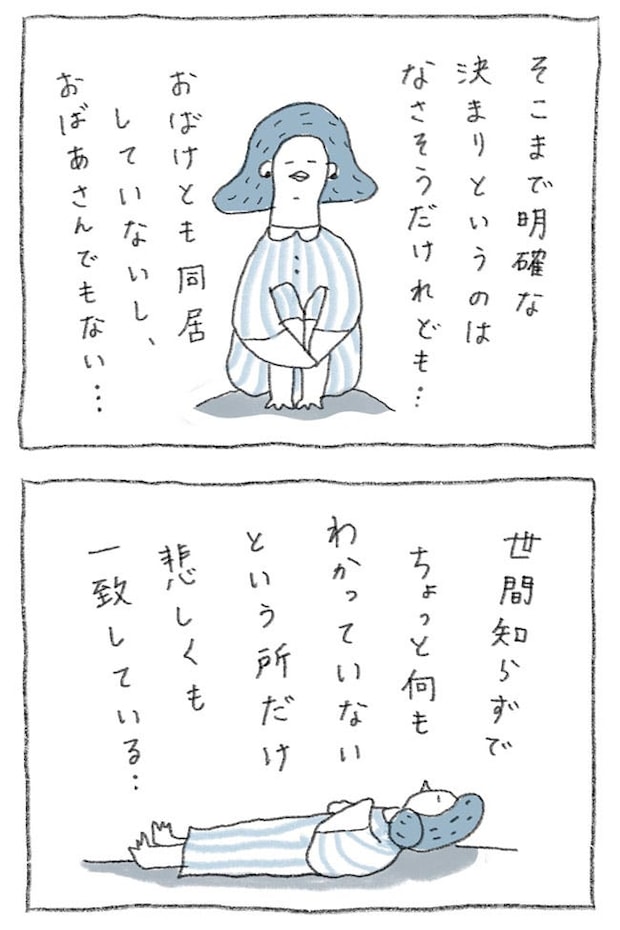 そこまで明確な
決まりというのは
なさそうだけれども…
おばけとも同居
していないし、
おばあさんでもない…
世間知らずで
ちょっと何も
わかっていない
という所だけ
悲しくも
一致している…